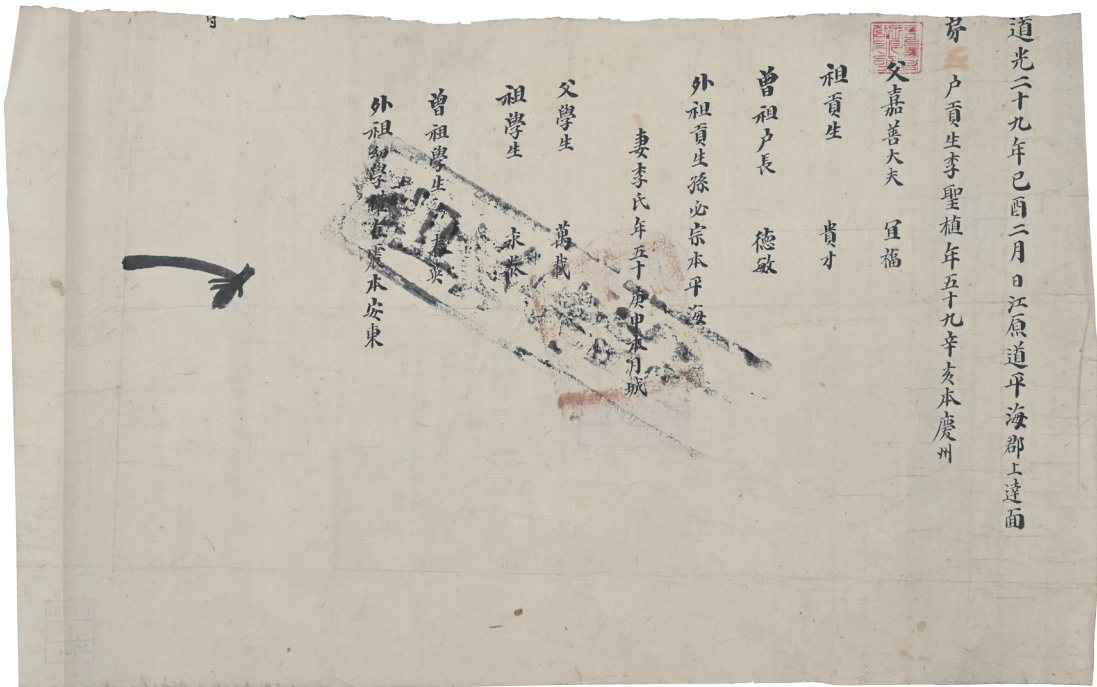 道光二十九年己酉二月 日江原道平海郡上逹面
第五户貢生李聖植年五十九辛亥本慶州
父嘉善大夫 宜福
祖貢生 貴才
曾祖户長 德敏
外祖貢生孫必宗本平海
妻李氏年五十庚申本月城
父學生 萬載
祖學生 求
曾祖學生 英
外祖 學 本安東